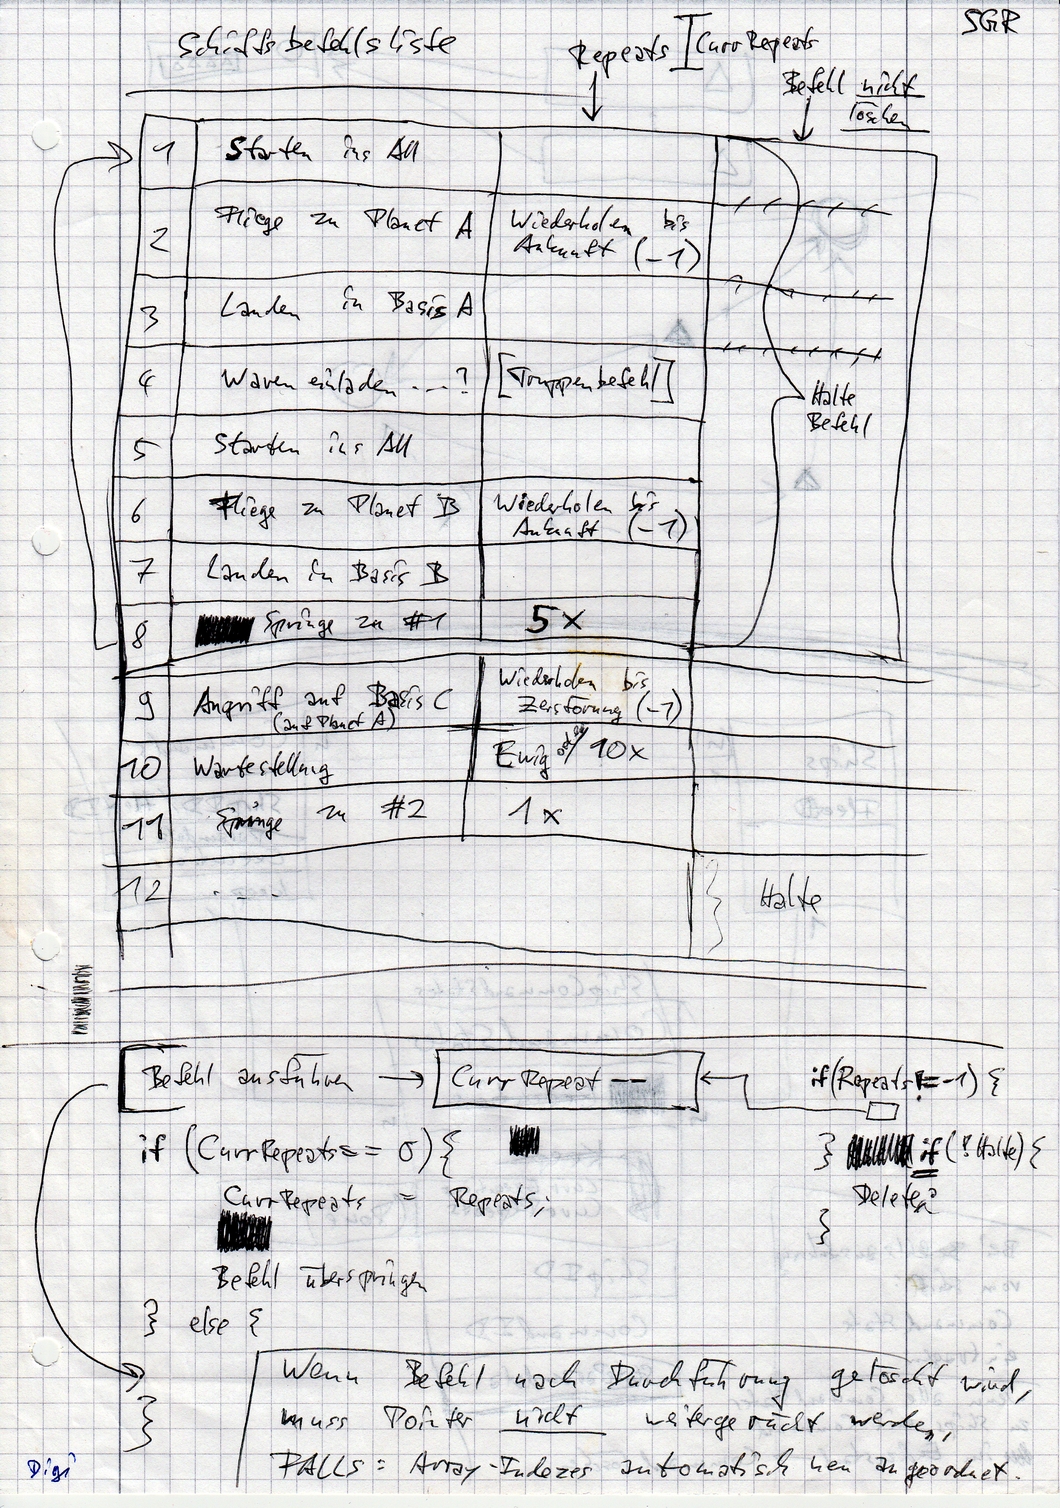 SGR
Schiffsbefehlsliste
Repeats | CurrRepeats
Befehl nicht
löschen
1 Starten ins All
2 Fliege zu Planet A Wiederholen bis
Ankunft (-1)
3 Landen in Basis A
4 Waren einladen ...? [Truppenbefehl]
Halte
Befehl
5 Starten ins All
6 Fliege zu Planet B Wiederholen bis
Ankunft (-1)
7 Landen in Basis B
8 Springe zu #1 5x
9 Angriff auf Basis C Wiederholen bis
(auf Planet A) Zerstörung (-1)
10 Wartestellung Ewig od. 10x
11 Springe zu #2 1x
12 . - . Halte
Befehl ausführen → CurrRepeat -- if (Repeats != -1) {
if (CurrRepeats == 0) { } if (!Halte) {
CurrRepeats = Repeats; Delete;
}
Befehl überspringen
} else {
Wenn Befehl nach Durchführung gelöscht wird,
}
muss Pointer nicht weitergerückt werden,
}
FALLS = Array-Indezes automatisch neu angeordnet.
Digi